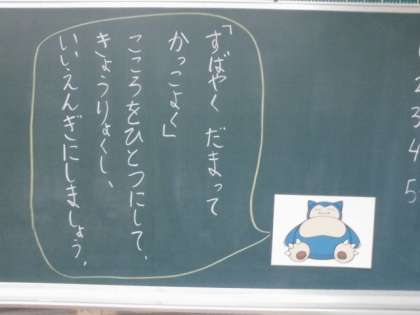 「すばやく だまって
かっこよく」
こころをひとつにして、
きょうりょくし、
いいえんぎにしましょう。
1
2
3
4
5